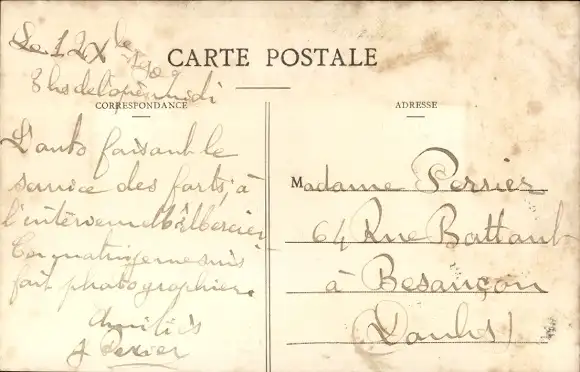 CARTE POSTALE
Le 12 Xbre
3 hs de l'après midi
CORRESPONDANCE
L'auto faisant le
service des forts, à
l'intérieur
En quatrième suis
fait photographier.
Amitiés
J Perrier
ADRESSE
Madame Perrier
64 Rue Battant
à Besançon
(Doubs)